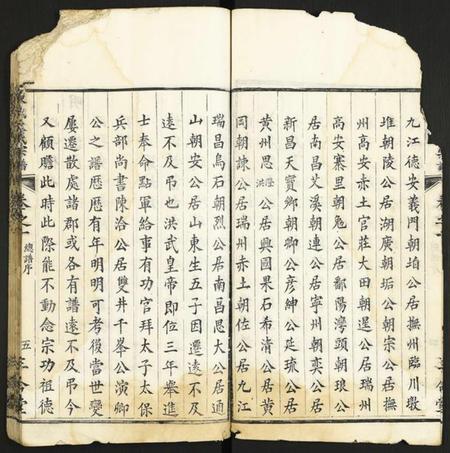 九江德安義門朝垍公居撫州臨川墩
堆朝陵公居湖廣朝垢公朝宗公居撫
州高安赤土官莊大田朝逞公居瑞州
高安寨里朝兔公居鄱陽灣頭朝琅公
居南昌艾溪朝連公居寧州朝奕公居
新昌天寶鄉朝卿公彥紳公延琉公居
黄州思澄洪公居興國果石希清公居黄
岡朝諫公居瑞州赤土朝佐公居九江
瑞昌烏石朝烈公居南昌思大公居通
山朝安公居山東生五子因遷遠不及
遠不及弔也洪武皇帝即位三年舉進
士奉命點軍給事有功官拜太子太保
兵部尚書陳洽公居雙井千峯公演卿
公之譜歷歷有年明明可考後當世變
屢遷散處諸郡或各有譜遠不及弔今
又顧瞻此時此際能不動念宗功祖德
總譜序
五